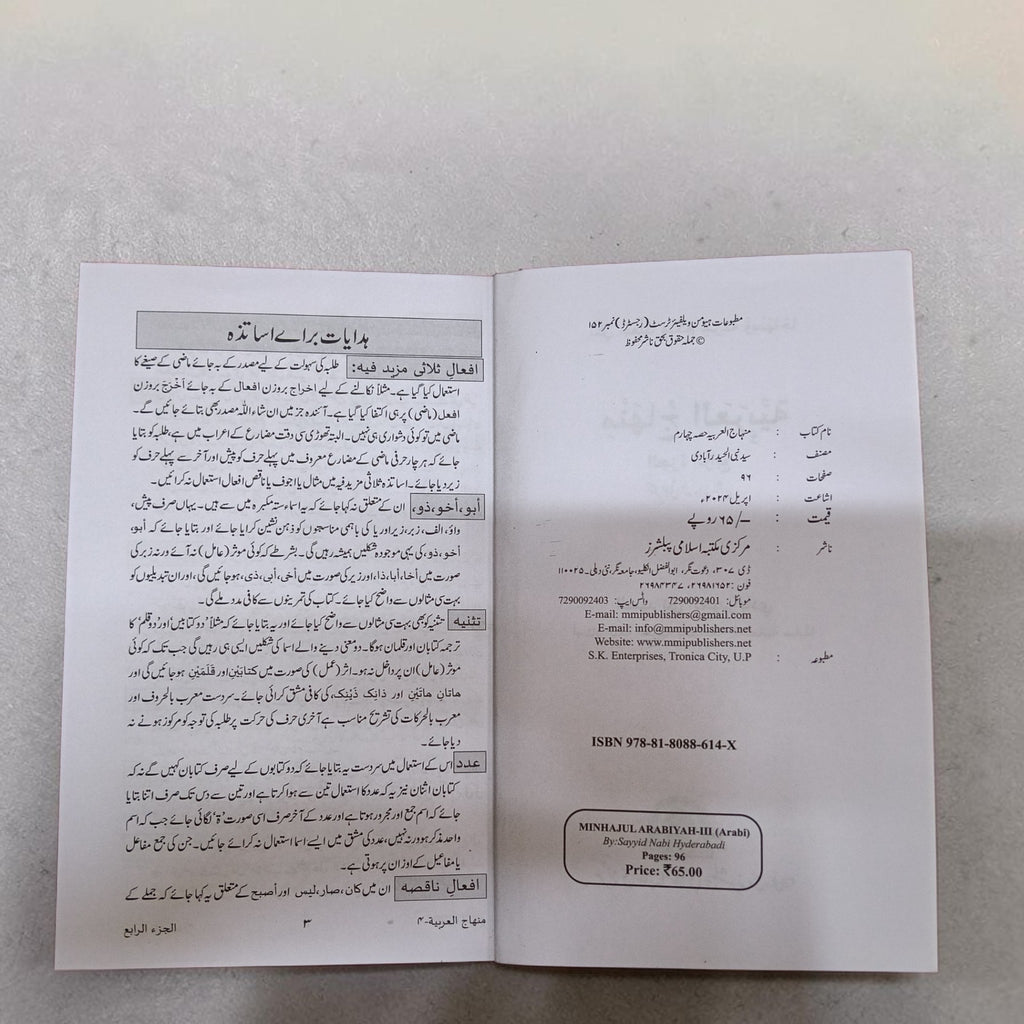 مطبوعات ہیومن ویلفیئر ٹرسٹ (رجسٹرڈ) نمبر ۱۵۲
© جملہ حقوق بحق ناشر محفوظ
نام کتاب : منہاج العربیہ حصہ چہارم
مصنف : سید نبی الحیدرآبادی
صفحات : ۹۶
اشاعت : اپریل ۲۰۲۴ء
قیمت : ۶۵/– روپے
ناشر : مرکزی مکتبہ اسلامی پبلشرز
ڈی ۳۰۷، دعوت نگر، ابوالفضل انکلیو، جامعہ نگر، نئی دہلی۔ ۱۱۰۰۲۵
فون: ۲۶۹۸۱۶۵۲، ۲۶۹۸۴۳۴۷
موبائل: 7290092401 واٹس ایپ: 7290092403
E-mail: mmipublishers@gmail.com
E-mail: info@mmipublishers.net
Website: www.mmipublishers.net
مطبوعہ : S.K. Enterprises, Tronica City, U.P
ISBN 978-81-8088-614-X
MINHAJUL ARABIYAH-III (Arabi)
By:Sayyid Nabi Hyderabadi
Pages: 96
Price: ₹65.00
ہدایات براے اساتذہ
افعالِ ثلاثی مزید فیہ: طلبہ کی سہولت کے لیے مصدر کے بہ جائے ماضی کے صیغے کا
استعمال کیا گیا ہے۔ مثلاً نکالنے کے لیے اخراج بروزن افعال کے بہ جائے أَخْرَجَ بروزن
افعل (ماضی) پر ہی اکتفا کیا گیا ہے۔ آئندہ جز میں ان شاء اللہ مصدر بھی بتائے جائیں گے۔
ماضی میں تو کوئی دشواری ہی نہیں۔ البتہ تھوڑی سی دقت مضارع کے اعراب میں ہے، طلبہ کو بتایا
جائے کہ ہر چار حرفی ماضی کے مضارع معروف میں پہلے حرف کو پیش اور آخر سے پہلے حرف کو
زیر دیا جائے۔ اساتذہ ثلاثی مزید فیہ میں مثال یا اجوف یا ناقص افعال استعمال نہ کرائیں۔
أبو، أخو، ذو، ان کے متعلق نہ کہا جائے کہ یہ اسماء ستہ مکبرہ میں سے ہیں۔ یہاں صرف پیش،
واؤ، الف، زبر، زیر اور یا کی باہمی مناسبتوں کو ذہن نشین کرایا جائے اور بتایا جائے کہ أبو،
أخو، ذو، کی یہی موجودہ شکلیں ہمیشہ رہیں گی۔ بشرطے کہ کوئی موثر (عامل) نہ آئے ورنہ زبر کی
صورت میں أخا، أبا، ذا، اور زیر کی صورت میں أخی، أبی، ذی، ہو جائیں گی، اور ان تبدیلیوں کو
بہت سی مثالوں سے واضح کیا جائے۔ کتاب کی تمرینوں سے کافی مدد ملے گی۔
تثنیہ تثنیہ کو بھی بہت سی مثالوں سے واضح کیا جائے اور یہ بتایا جائے کہ مثلاً 'دو کتابیں' اور 'دو قلم' کا
ترجمہ کتابان اور قلمان ہوگا۔ دو معنی دینے والے اسما کی شکلیں ایسی ہی رہیں گی جب تک کہ کوئی
موثر (عامل) ان پر داخل نہ ہو۔ اثر (عمل) کی صورت میں کتابَیْنِ اور قَلَمَیْنِ ہو جائیں گی اور
هاتانِ هاتَیْنِ اور ذانِک ذَیْنِک، کی کافی مشق کرائی جائے۔ سردست معرب بالحروف اور
معرب بالحرکات کی تشریح مناسب ہے آخری حرف کی حرکت پر طلبہ کی توجہ کو مرکوز ہونے نہ
دیا جائے۔
عدد اس کے استعمال میں سردست یہ بتایا جائے کہ دو کتابوں کے لیے صرف کتابان کہیں گے نہ کہ
کتابان اثنان نیز یہ کہ عدد کا استعمال تین سے ہوا کرتا ہے اور تین سے دس تک صرف اتنا بتایا
جائے کہ اسم جمع اور مجرور ہوتا ہے اور عدد کے آخر صرف اسی صورت 'ۃ' لگائی جائے جب کہ اسم
واحد مذکر ہو ورنہ نہیں، عدد کی مشق میں ایسے اسما استعمال نہ کرائے جائیں۔ جن کی جمع مفاعل
یا مفاعیل کے اوزان پر ہوتی ہے۔
افعالِ ناقصہ ان میں کان، صار، لیس اور أصبح کے متعلق یہ کہا جائے کہ جملے کے
منهاج العربية-۴ ۳ الجزء الرابع